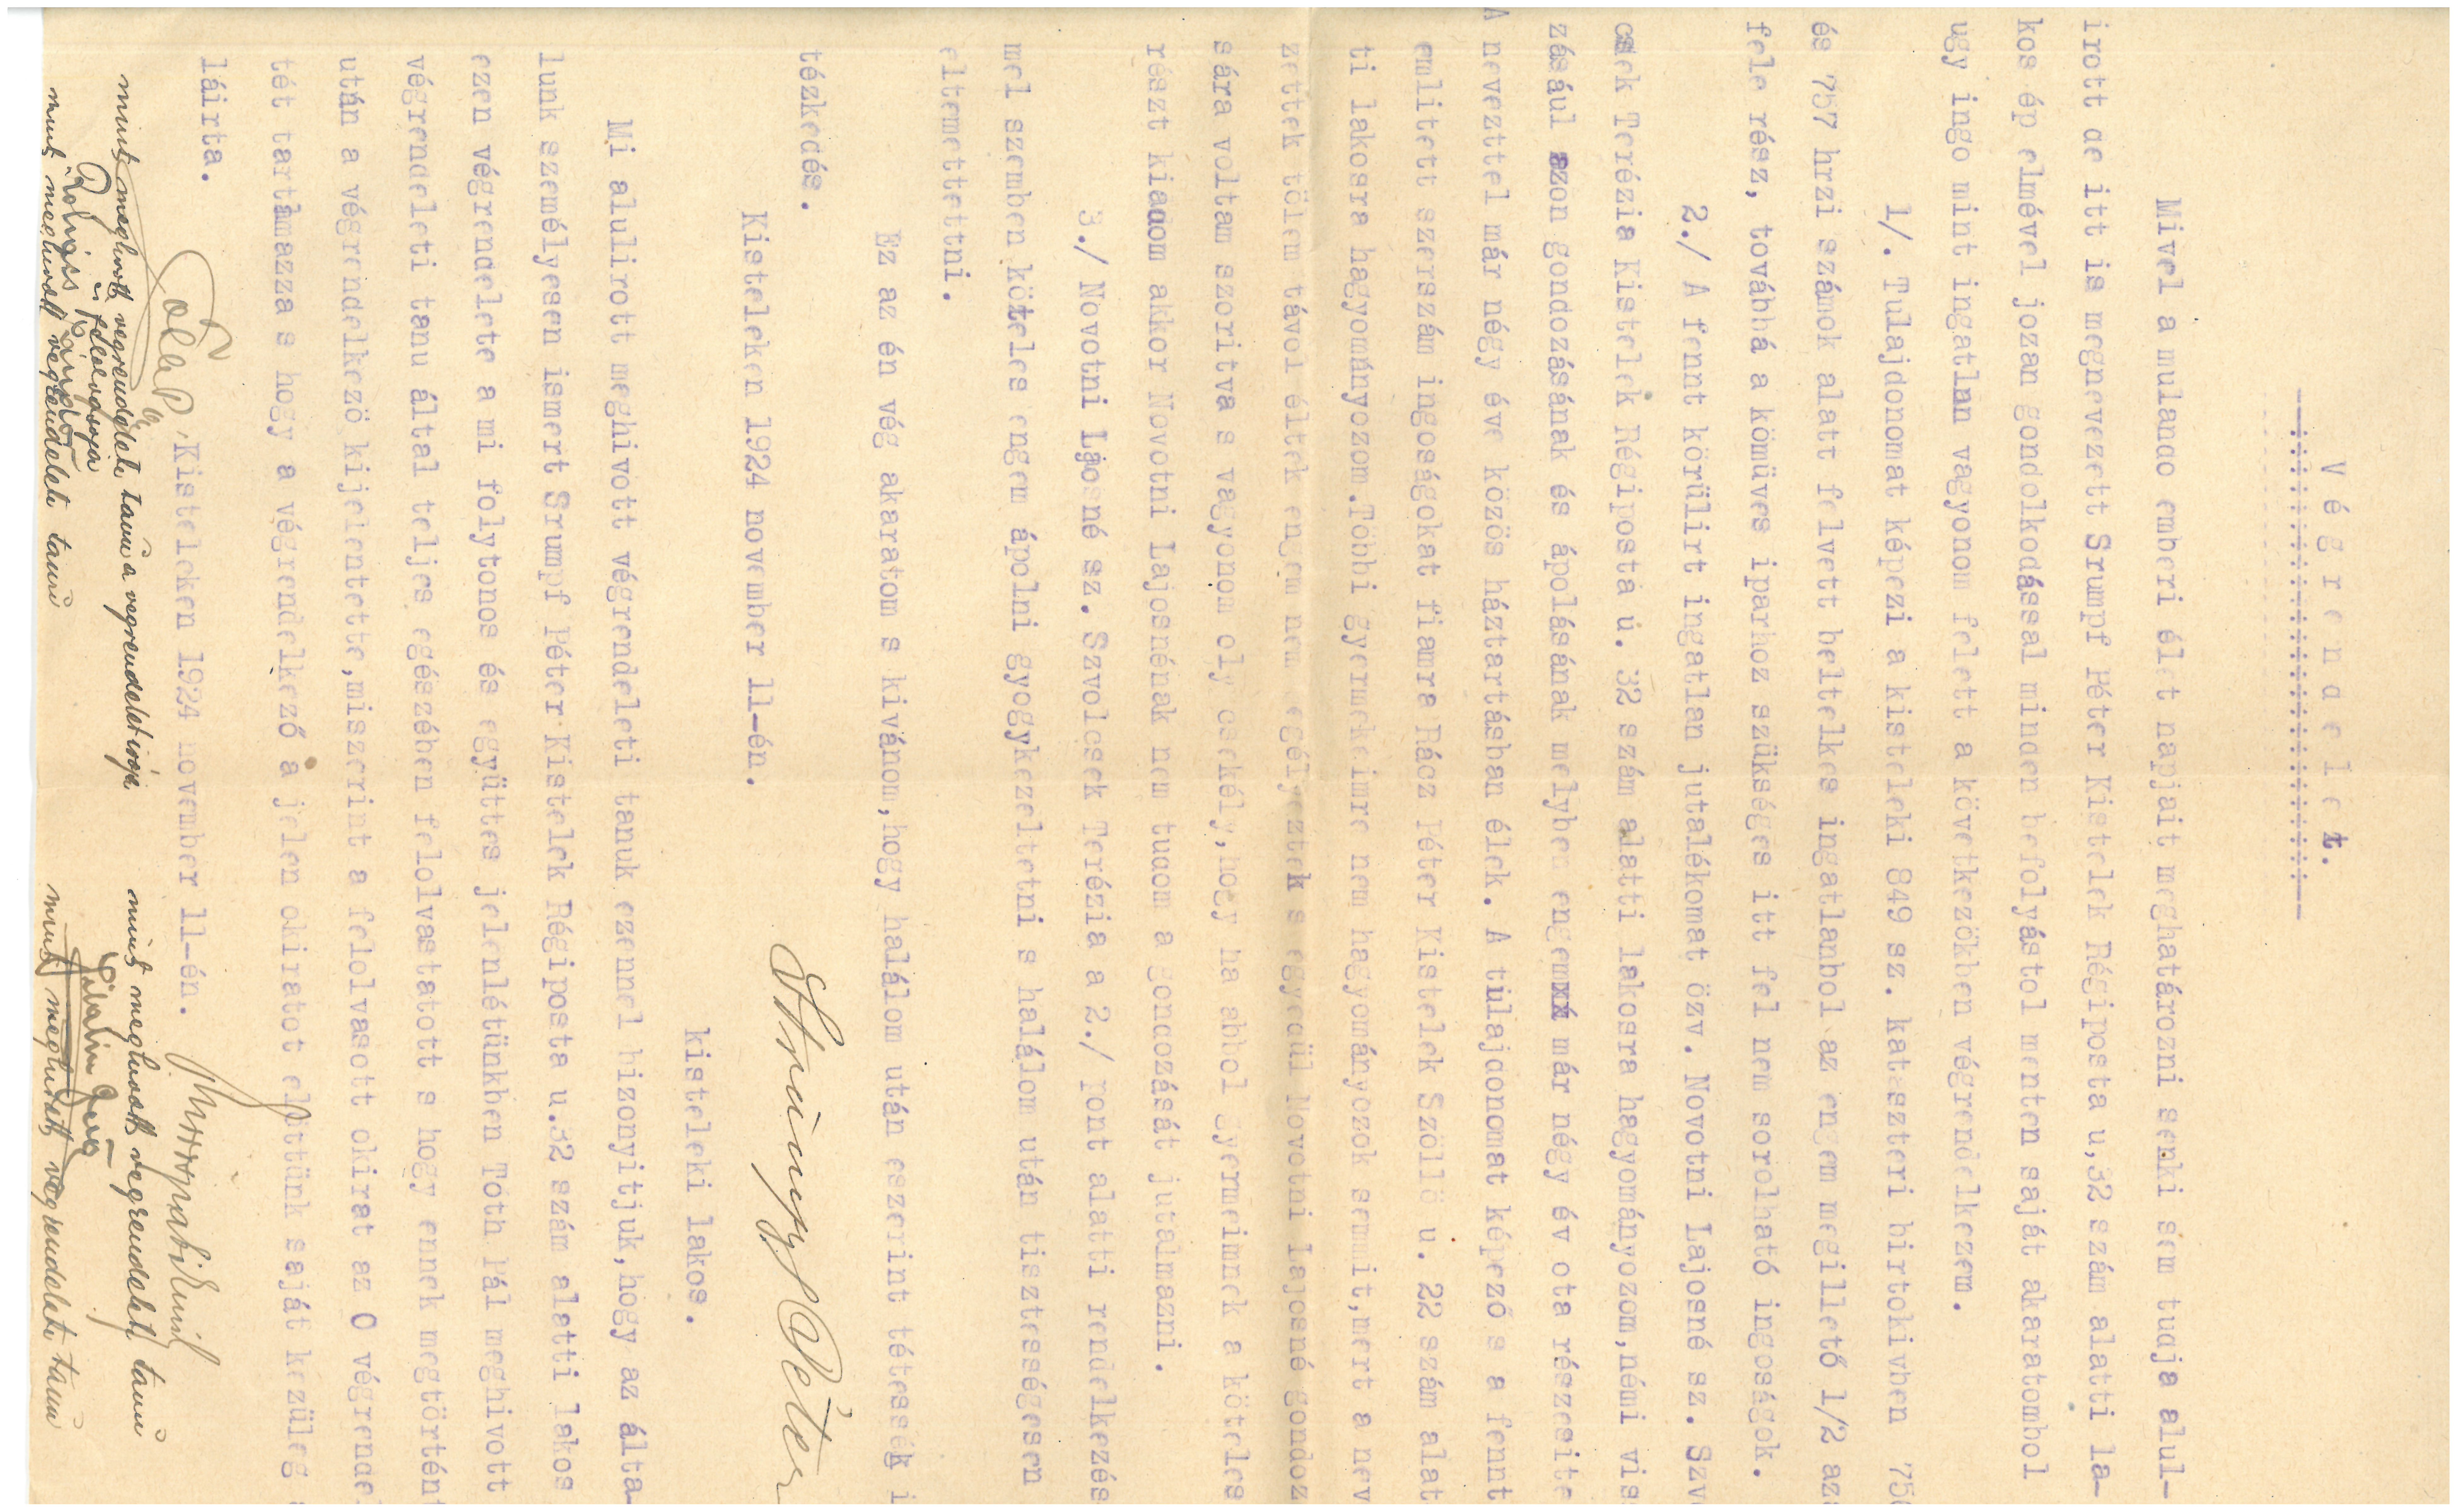 V é g r e n d e l e t.
Mivel a mulando emberi élet napjait meghatározni senki sem tudja alul-
irott de itt is megnevezett Srumpf Péter Kistelek Régiposta u,32 szám alatti la-
kos ép elmével jozan gondolkodással minden befolyástol menten saját akaratombol
ugy ingo mint ingatlan vagyonom felett a következökben végrendelkezem.
1/. Tulajdonomat képezi a kisteleki 849 sz. kataszteri birtokivben 756
és 757 hrzi számok alatt felvett beltelkes ingatlanbol az engem megillető 1/2 az
fele rész, továbbá a kömüves iparhoz szükséges itt fel nem sorolható ingoságok.
2./ A fennt körülirt ingatlan jutalékomat özv. Novotni Lajosné sz. Szv
csek Terézia Kistelek Régiposta u. 32 szám alatti lakosra hagyományozom,némi vis
zásául azon gondozásának és ápolásának melyben engem már négy év ota részesite
A nevezttel már négy éve közös háztartásban élek. A tulajdonomat képező s a fennt
emlitett szerszám ingoságokat fiamra Rácz Péter Kistelek Szöllö u. 22 szám alat
ti lakosra hagyományozom.Többi gyermekeimre nem hagyományozok semmit,mert a nev
zettek tölem távol éltek engem nem segélyeztek s egyedül Novotni Lajosné gondoz
sára voltam szoritva s vagyonom oly csekély,hogy ha abbol gyermeimnek a köteles
részt kiadom akkor Novotni Lajosnénak nem tudom a gondozását jutalmazni.
3./ Novotni Ljosné sz. Szvolcsek Terézia a 2./ pont alatti rendelkezés
mel szemben köteles engem ápolni gyogykezeltetni s halálom után tisztességesen
eltemettetni.
Ez az én vég akaratom s kivánom,hogy halálom után eszerint tétessék i
tézkedés.
Kisteleken 1924 november 11-én.
Strumpf Péter
kisteleki lakos.
Mi alulirott meghivott végrendeleti tanuk ezennel bizonyitjuk,hogy az álta-
lunk személyesen ismert Srumpf Péter Kistelek Régiposta u.32 szám alatti lakos
ezen végrendelete a mi folytonos és együttes jelenlétünkben Toth Pál meghivott
végrendeleti tanu által teljes egészében felolvastatott s hogy ennek megtörtént
után a végrendelkező kijelentette,miszerint a felolvasott okirat az O végrende
tét tartlmazza s hogy a végrendelkező a jelen okiratot előttünk saját kezüleg
láirta.
Kisteleken 1924 november 11-én.
mint meghivott végrendeleti tanu a végrendelet irója
és felolvasója
mint meghivott végrendeleti tanu
mint meghivott végrendeleti tanu
mint meghivott végrendeleti tanu